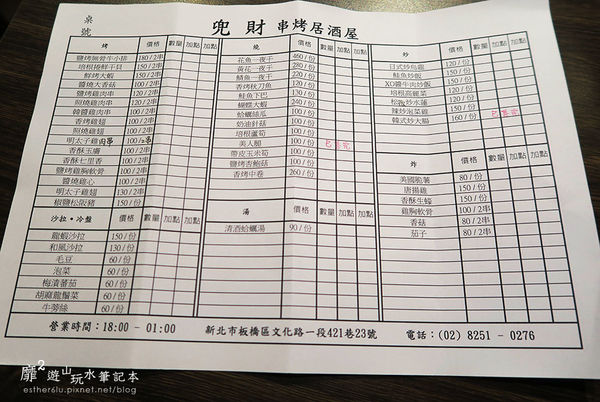 桌號
兜財 串烤居酒屋
烤 價格 數量 加點 加點
鹽烤無骨牛小排 180/2串
培根捲鮮干貝 150/2串
鮮烤大蝦 150/2串
醬燒大香菇 100/2串
鹽烤雞肉串 120/2串
照燒雞肉串 120/2串
韓醬雞肉串 120/2串
香烤雞翅 100/2串
照燒雞翅 100/2串
明太子雞肉串
香酥玉膚 100/2串
香酥七里香 100/2串
鹽烤雞胸軟骨 100/2串
醬燒雞心 100/2串
明太子雞翅 130/2串
椒鹽松阪豬 150/2串
沙拉•冷盤 價格 數量 加點 加點
龍蝦沙拉 150/份
和風沙拉 130/份
毛豆 60/份
泡菜 60/份
梅漬蕃茄 60/份
胡麻龍鬚菜 60/份
牛蒡絲 60/份
燒 價格 數量 加點 加點
花魚一夜干 460/份
黃花一夜干 280/份
鯖魚一夜干 220/份
香烤秋刀魚 120/份
鮭魚下巴 120/份
蝴蝶大蝦 200/份
蛤蠣絲瓜 120/份
奶油針菇 100/份
培根蘆筍 100/份
美人腿 100/份 已售完
帶皮玉米筍 100/份
鹽烤杏鮑菇 100/份
香烤中卷 260/份
湯 價格 數量 加點 加點
清酒蛤蠣湯 90/份
炒 價格 數量 加點 加點
日式炒烏龍 120/份
鮭魚炒飯 120/份
XO醬牛肉炒飯 150/份
培根高麗菜 120/份
松阪炒水蓮 150/份
辣炒泡菜雞 150/份
韓式炒大腸 160/份 已售完
炸 價格 數量 加點 加點
美國脆薯 80/份
唐揚雞 150/份
香酥生蠔 150/份
雞胸軟骨 100/份
香菇 80/2串
茄子 80/2串
營業時間：18:00 - 01:00 新北市板橋區文化路一段421巷23號 電話：(02) 8251 - 0276
靡2遊山玩水筆記本
esther6lu.pixnet.net/blog